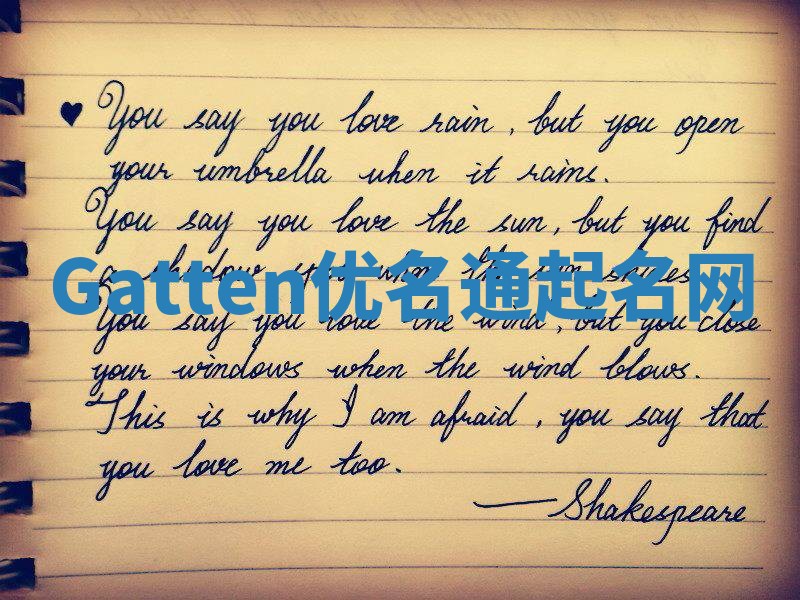 ♥ You say you love rain, but you open
your umbrella when it rains.
You say you love the sun, but you find
a shadow spot when the sun shines.
Gatten优名通起名网
You say you love the wind, but you close
your windows when the wind blows.
This is why I am afraid, you say that
you love me too.
—Shakespeare